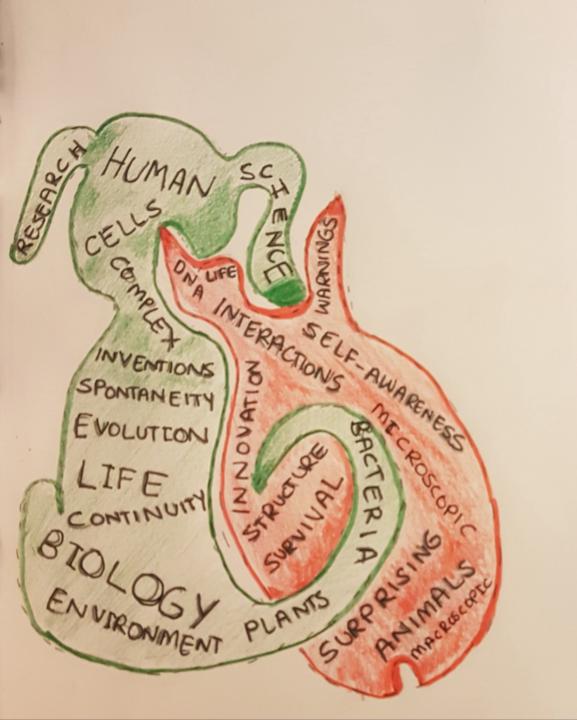 RESEARCH
HUMAN
SCIENCE
CELLS
COMPLEX
INVENTIONS
SPONTANEITY
EVOLUTION
LIFE
CONTINUITY
BIOLOGY
ENVIRONMENT
PLANTS
BACTERIA
DNA
LIFE
WARNINGS
INTERACTIONS
SELF-AWARENESS
INNOVATION
MICROSCOPIC
STRUCTURE
SURVIVAL
SURPRISING
ANIMALS
MACROSCOPIC